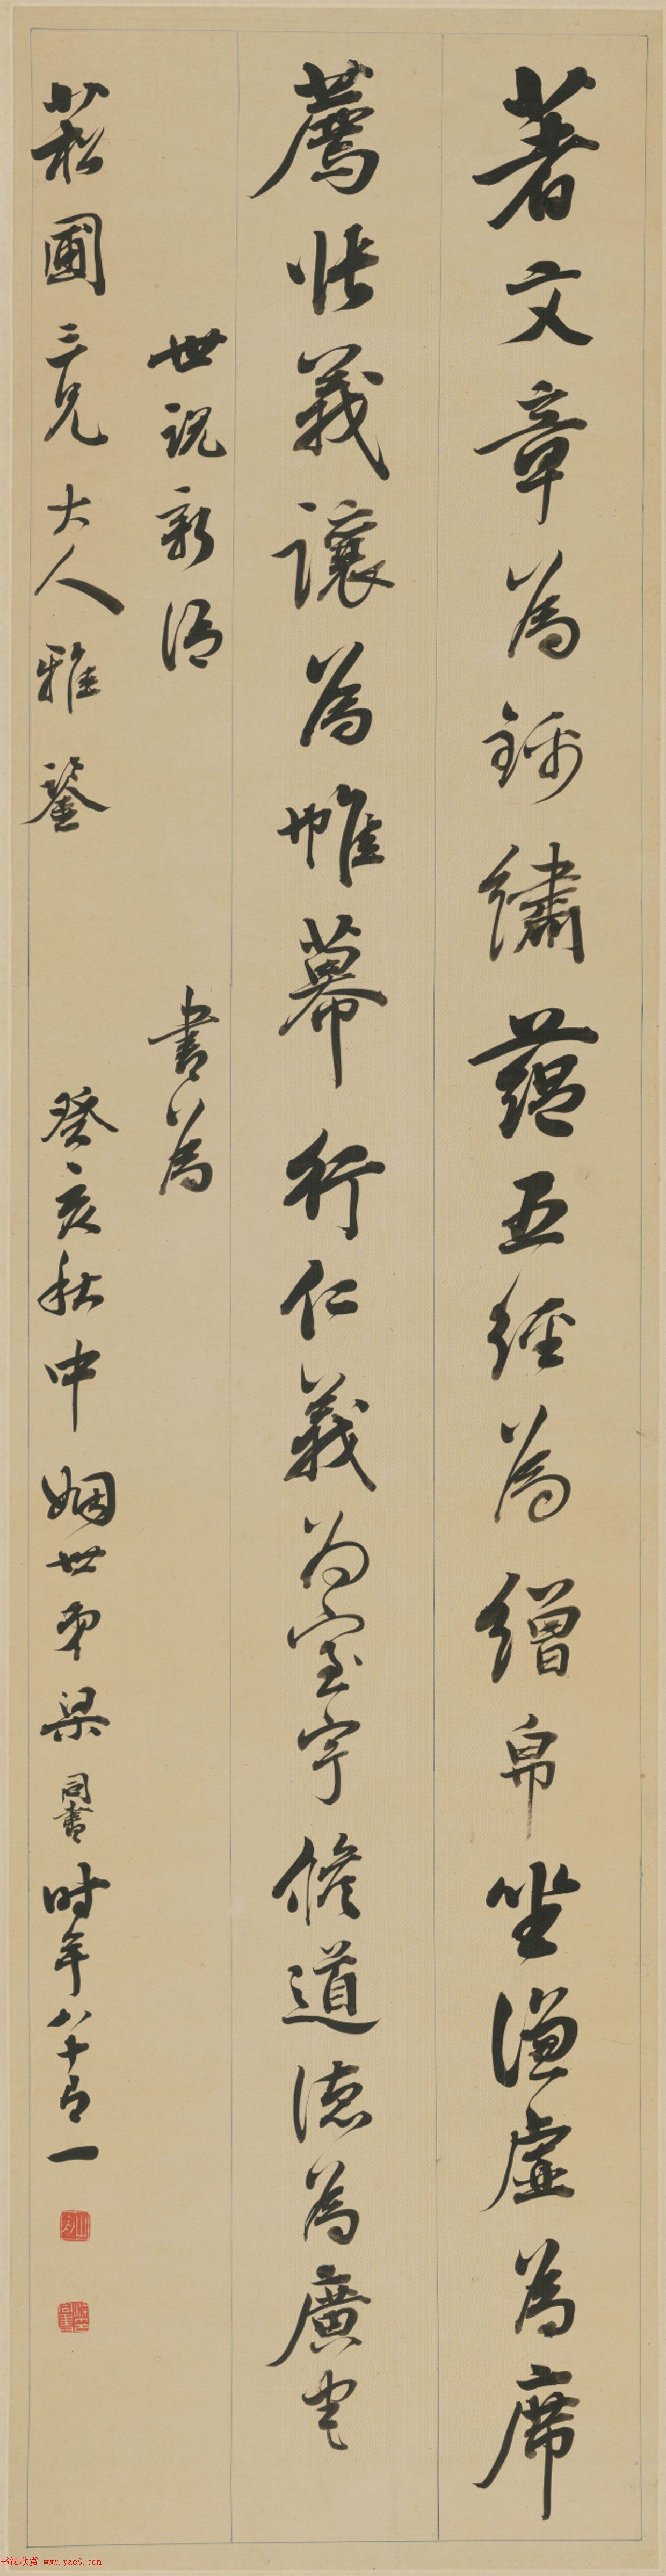 著文章為錦繡蘊五經為繒帛坐謙虛為席
薦張義讓為帷幕行仁義为室宇脩道德為廣宅
世説新語 書為
菘圃三兄大人雅鑒 癸亥秋中姻世弟梁同書时年八十有一
书法欣赏 www.yac8.com